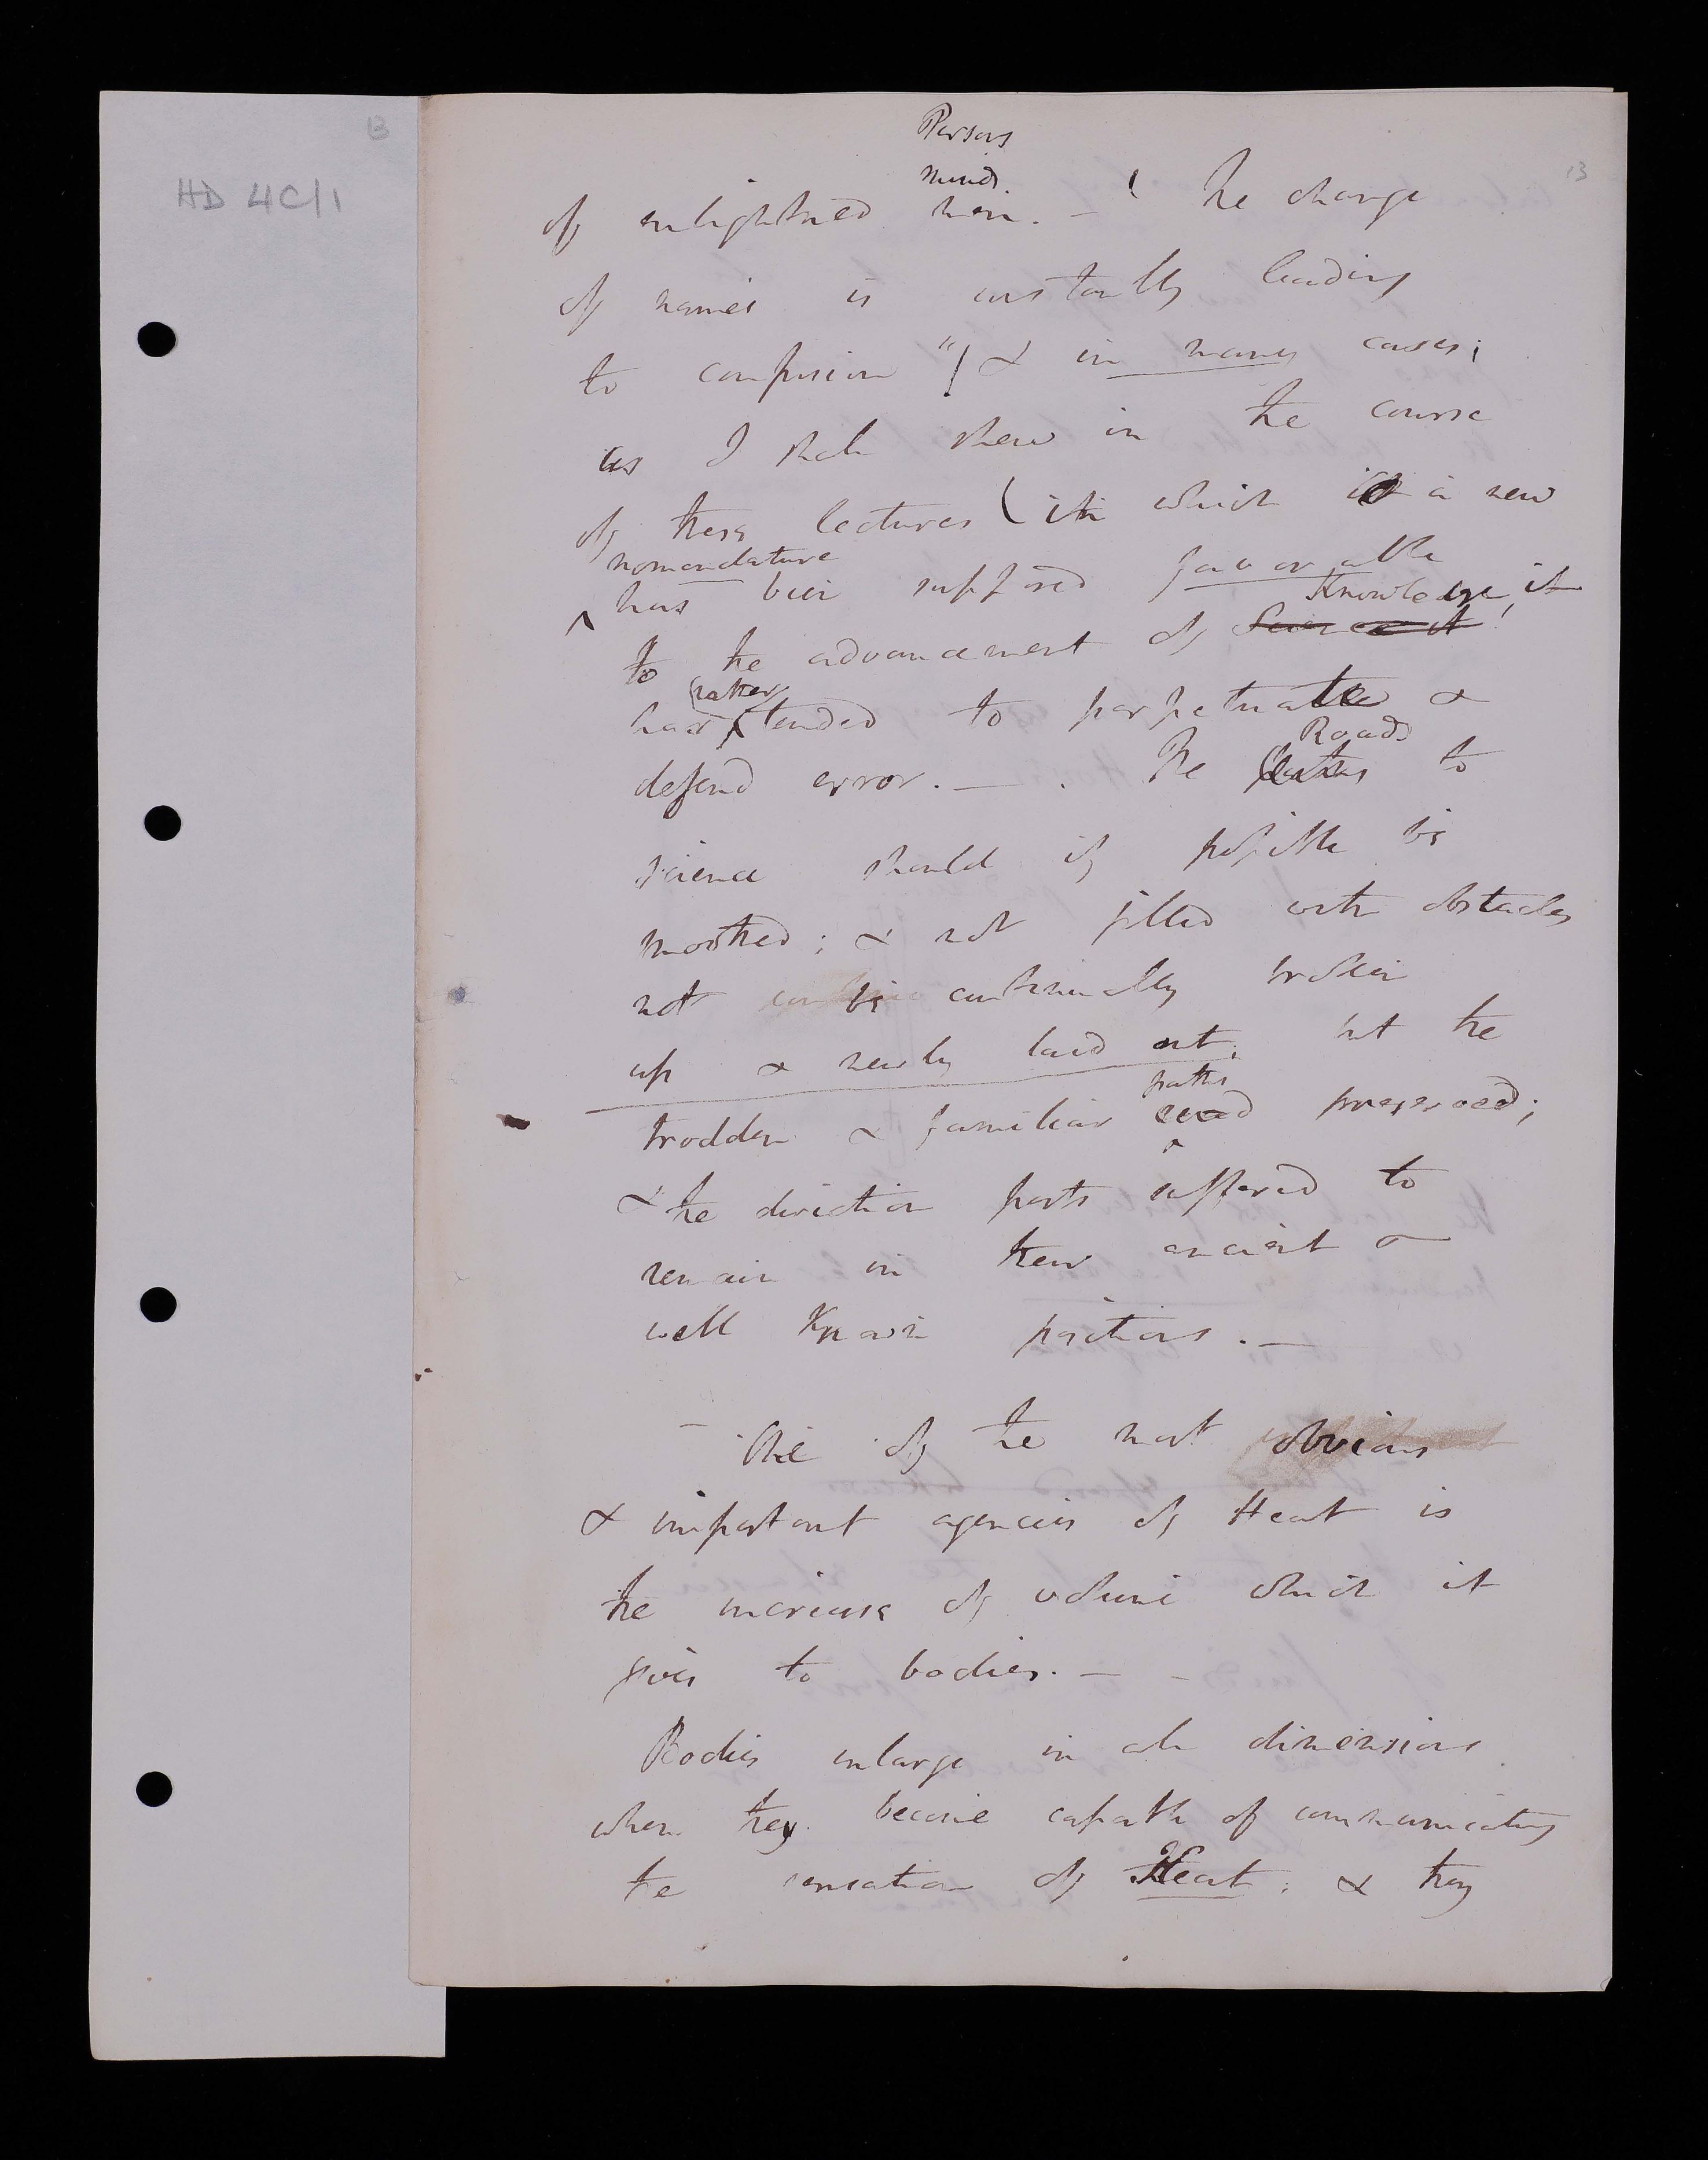 13
HD 4C/1
13
Persons
minds.
of enlightned men. — ( The change
of names is constantly leading
to confusion "/ & in many cases;
as I shall shew in the course
of these lectures ( in which a new
nomenclature
has been supposed favorable
Knowledge, it
to the advancement of Science it!
rather
has tended to perpetuate &
Roads
defend error. — . The paths to
science should if possible be
smoothed; & not filled with obstacles
not be continually broken
up & newly laid out; but the
paths
trodden & familiar road preserved;
& the direction posts suffered to
remain in their ancient &
well Known positions. —
— One of the most obvious
& important agencies of Heat is
the increase of volume which it
gives to bodies. — —
Bodies enlarge in all dimensions
when they become capable of communicating
the sensation of Heat; & they